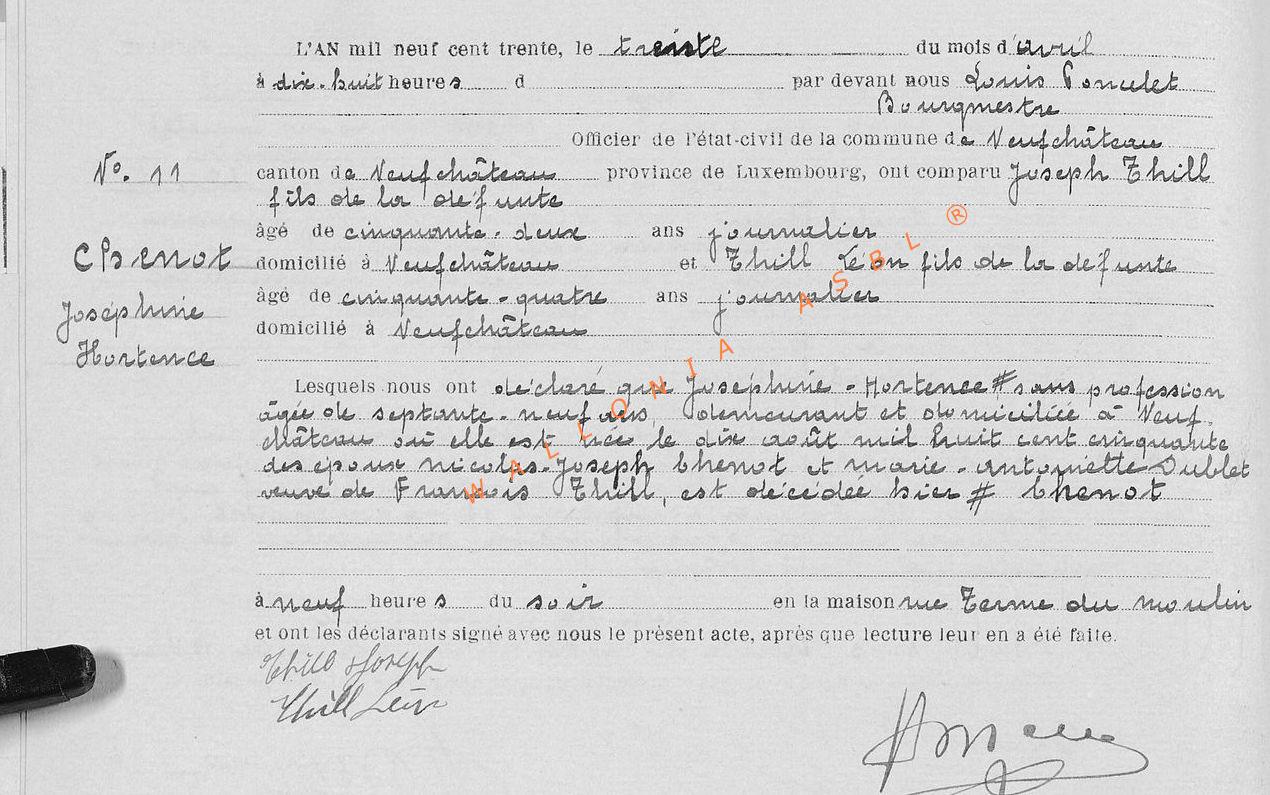 L'AN mil neuf cent trente, le trente du mois d'avril
à dix-huit heures d par devant nous Louis Poncelet
Bourgmestre
Officier de l'état-civil de la commune de Neufchâteau
No. 11
canton de Neufchâteau province de Luxembourg, ont comparu Joseph Thill
fils de la défunte
âgé de cinquante-deux ans journalier
Chenot
domicilié à Neufchâteau et Thill Léon fils de la défunte
âgé de cinquante-quatre ans journalier
Joséphine
domicilié à Neufchâteau
Hortence
Lesquels nous ont déclaré que Joséphine-Hortence # sans profession
âgée de septante-neuf ans, demeurant et domiciliée à Neuf-
château où elle est née le dix août mil huit cent cinquante
des époux Nicolas-Joseph Chenot et Marie-Antoinette Dublet
veuve de François Thill, est décédée hier # Chenot
à neuf heures du soir en la maison rue Terme du moulin
et ont les déclarants signé avec nous le présent acte, après que lecture leur en a été faite.
Thill Joseph
Thill Léon
WALLONIA ASBL ®